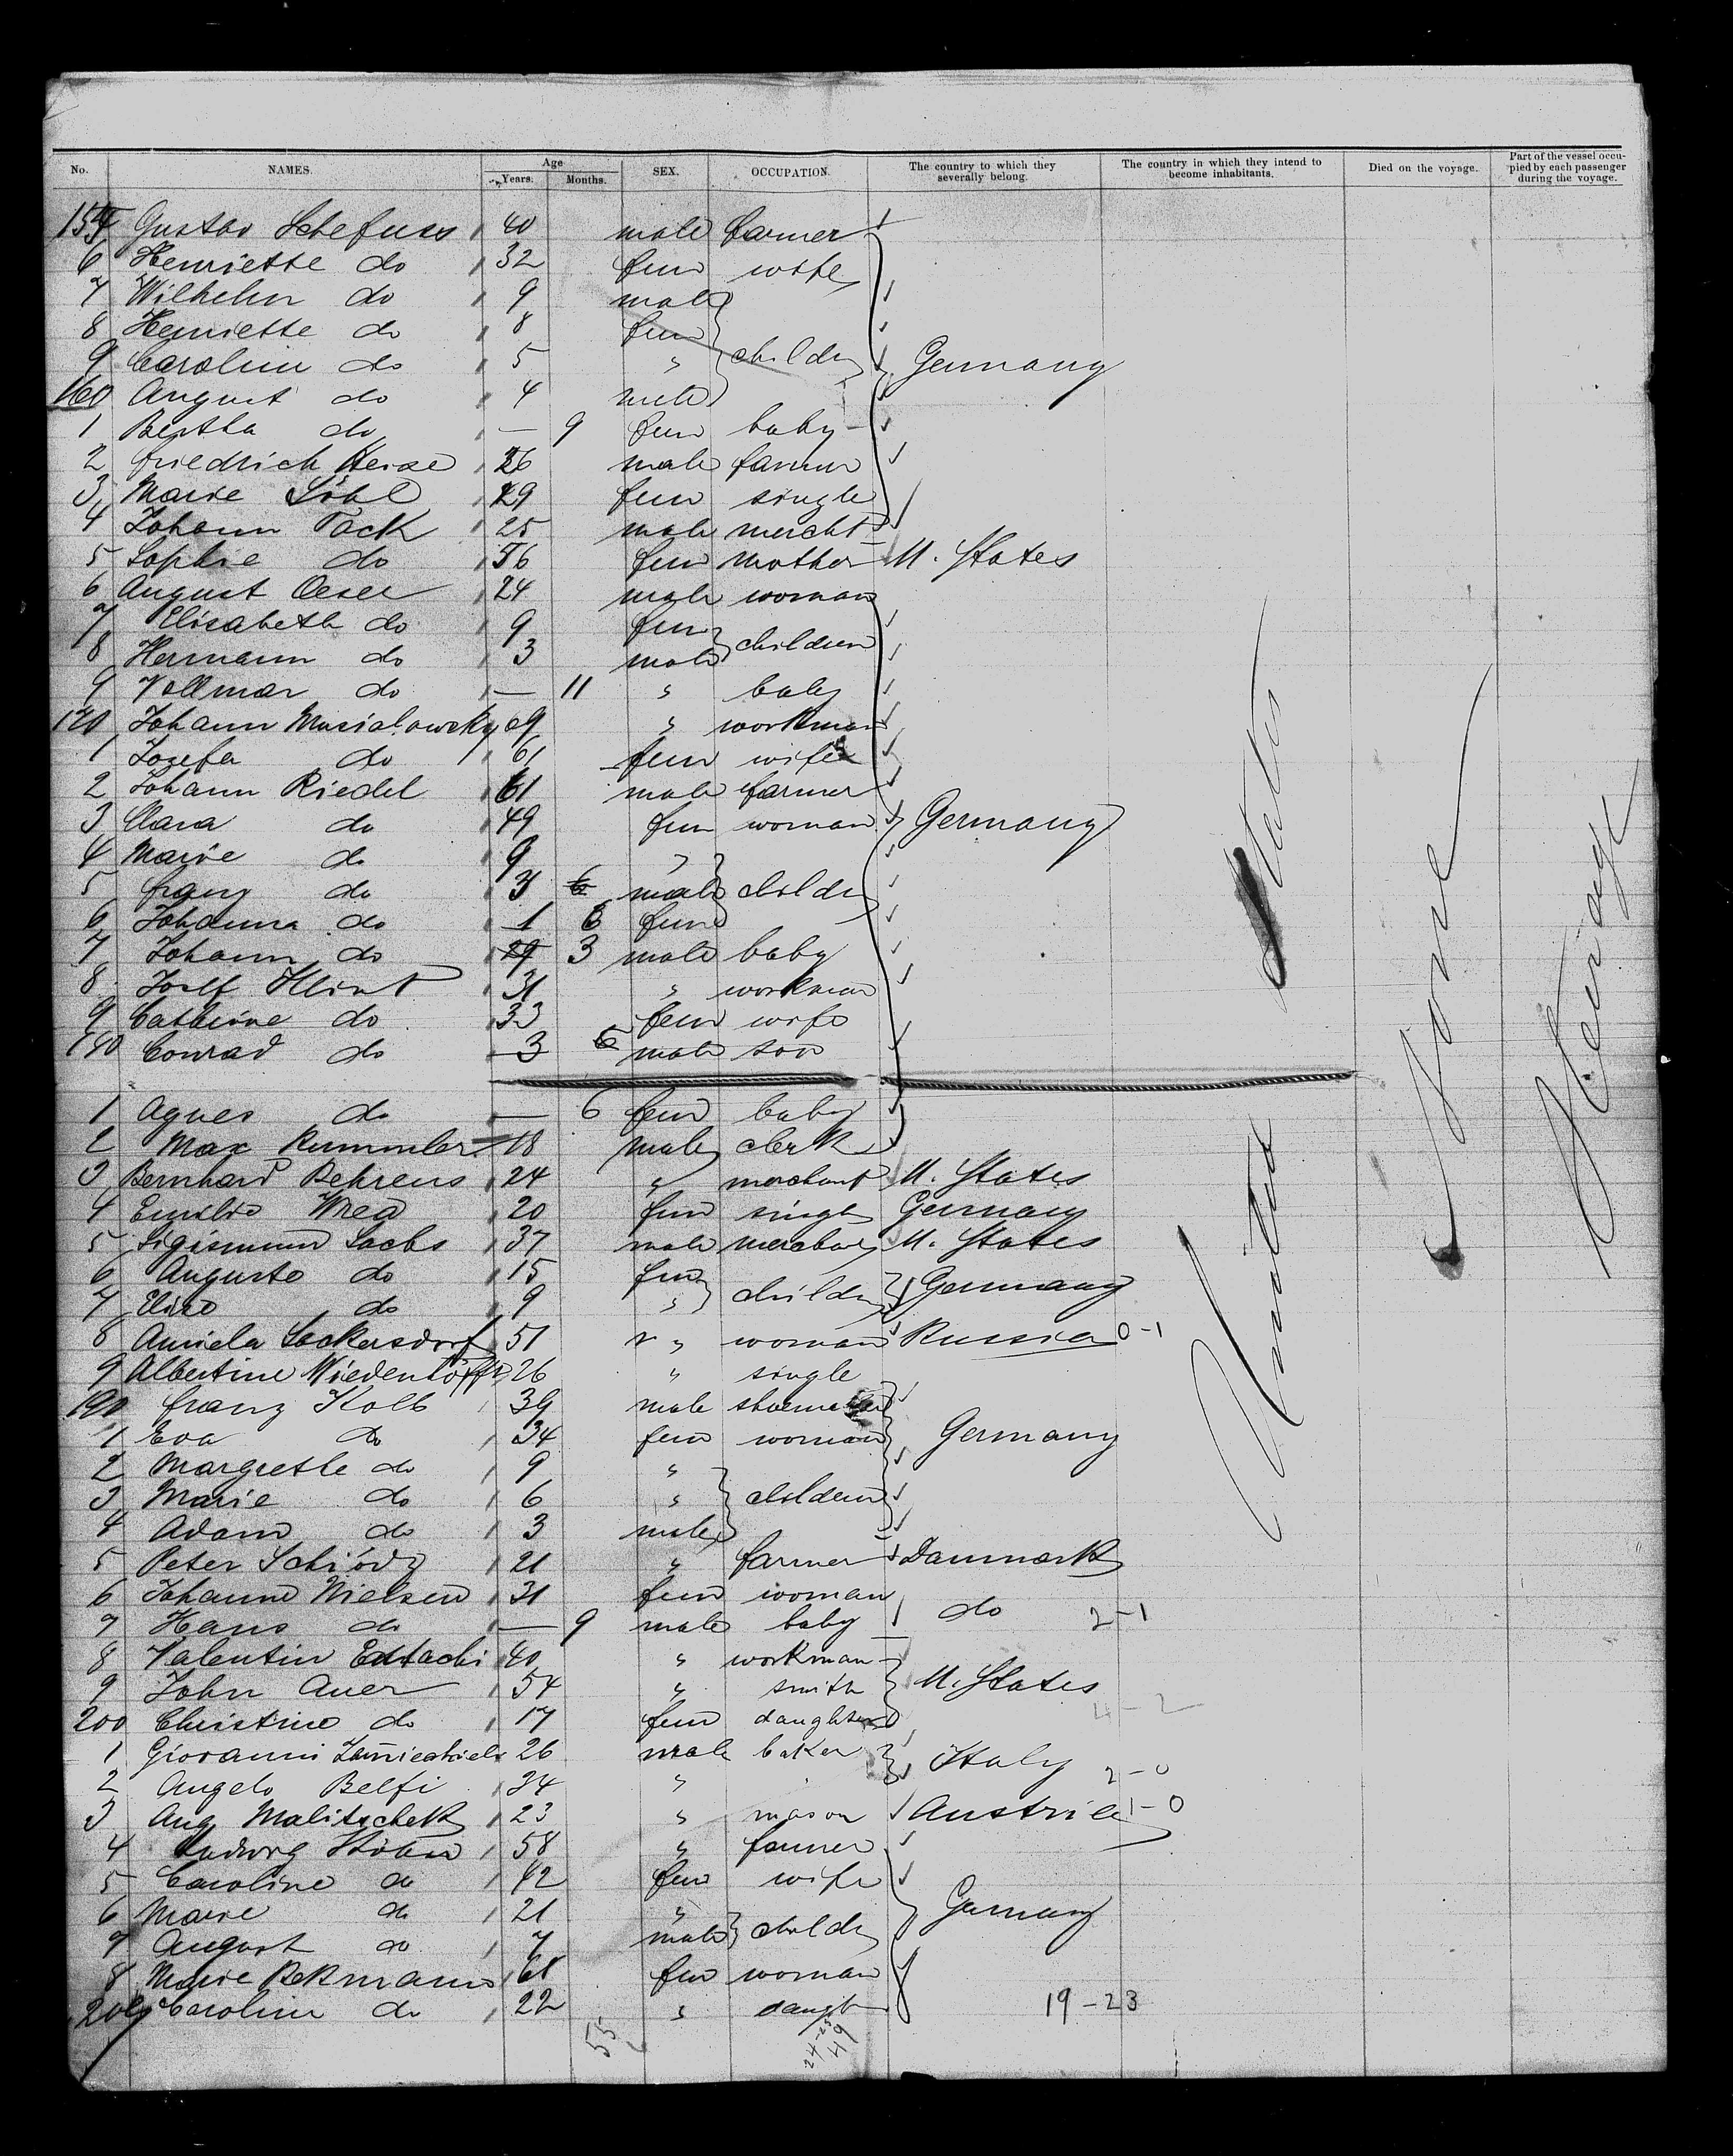 No. NAMES. Age Years. Months. SEX. OCCUPATION. The country to which they severally belong. The country in which they intend to become inhabitants. Died on the voyage. Part of the vessel occupied by each passenger during the voyage.
155 Gustav Schefuss 40 male farmer
6 Henriette do 32 fem wife
7 Wilhelm do 9 male
8 Henriette do 8 fem
9 Carolin do 5 " childr Germany
160 August do 4 male
1 Bertha do — 9 fem baby
2 Friedrich Heise 26 male farmer
3 Marie 29 fem single
4 Johann Tack 25 male mercht
5 Sophie do 56 fem mother U. States
6 August Oeser 24 male woman
7 Elisabeth do 9 fem children
8 Hermann do 3 male
9 Vollmar do — 11 " baby
170 Johann " workman
1 Josefa do 61 fem wife
2 Johann Riedel 61 male farmer
3 Clara do 49 fem woman Germany
4 Marie do 9 "
5 Franz do 3 6 male childr
6 Johanna do 1 6 fem
7 Johann do 3 male baby
8 Josef Klint 31 " workman
9 Catherine do 33 fem wife
180 Conrad do 3 6 male son
1 Agnes do — 6 fem baby
2 Max Rummler 18 male clerk
3 Bernhard Behrens 24 " merchant U. States
4 Emilie 20 fem single Germany
5 Sigismund Sachs 37 male merchant U. States
6 Auguste do 15 fem childr Germany
7 Elise do 9 "
8 Amiela Sackersdorf 51 " woman Russia 0-1
9 Albertine 26 " single
190 Franz Kolb 39 male shoemaker
1 Eva do 34 fem woman Germany
2 Margrethe do 9 "
3 Marie do 6 " children
4 Adam do 3 male
5 Peter 21 " farmer Danmark
6 Johanne Nielsen 31 fem woman
7 Hans do — 9 male baby do 2-1
8 Valentin 40 " workman
9 John Auer 54 " smith U. States
200 Christine do 17 fem daughter 4-2
1 Giovanni 26 male baker Italy
2 Angelo Belfi 34 " 2-0
3 Aug Malitschek 23 " mason Austria 1-0
4 Ludwig 58 " farmer
5 Caroline do 42 fem wife
6 Marie do 21 " Germany
7 August do 7 male childr
8 Marie Bekmann 61 fem woman
209 Carolin do 22 " daught 19-23
United States
None
Steerage
55
24-25
49